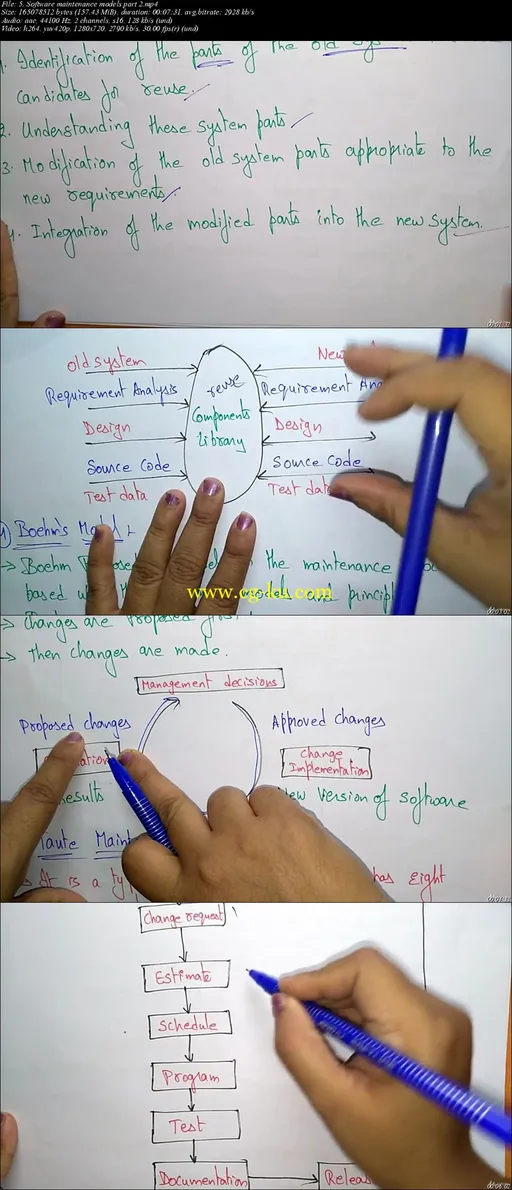 File: 5. Software maintenance models part 2.mp4
Size: 165078512 bytes (157.43 MiB), duration: 00:07:31, avg.bitrate: 2928 kb/s
Audio: aac, 44100 Hz, 2 channels, s16, 128 kb/s (und)
Video: h264, yuv420p, 1280x720, 2790 kb/s, 30.00 fps(r) (und)
1. Identification of the parts of the old
candidates for reuse.
2. Understanding these system parts
3. Modification of the old system parts appropriate to the
new requirements
4. Integration of the modified parts into the new system.
Old system
New
Requirement Analysis
reuse
Components
Library
Requirement Ana
Design
Design
Source Code
Source Code
Test data
Test dat
Boehm's Model:
→ Boehm the maintenance
based models and princip
www.cg-dds.com
→ Changes are proposed
→ then changes are made.
Management decisions
Proposed changes
Approved Changes
Change
Implementation
results
New Version of Software
Taute Maint
→ It is a ty has eight
Change request
Estimate
Schedule
Program
Test
Documentation
Releas